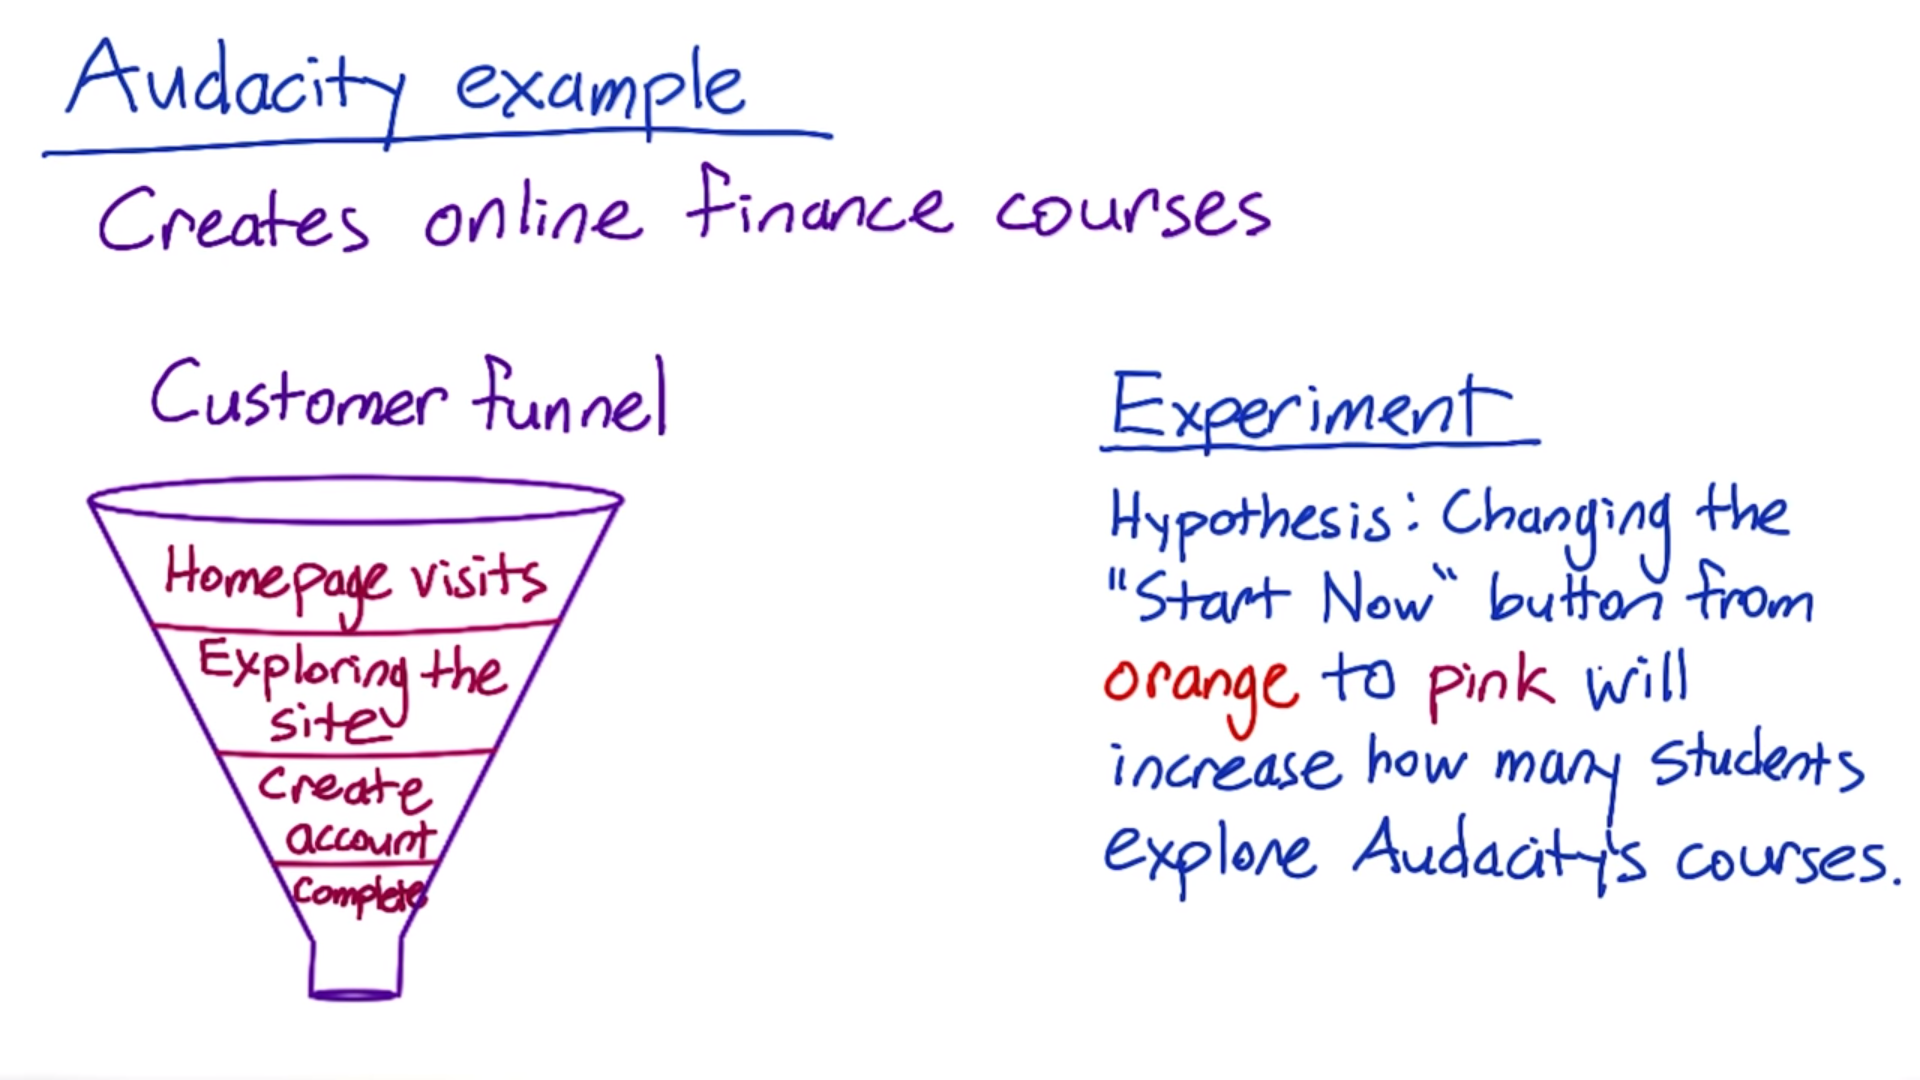 Audacity example
Creates online finance courses
Customer funnel
Homepage visits
Exploring the
site
Create
account
Complete
Experiment
Hypothesis: Changing the
"Start Now" button from
orange to pink will
increase how many students
explore Audacity's courses.